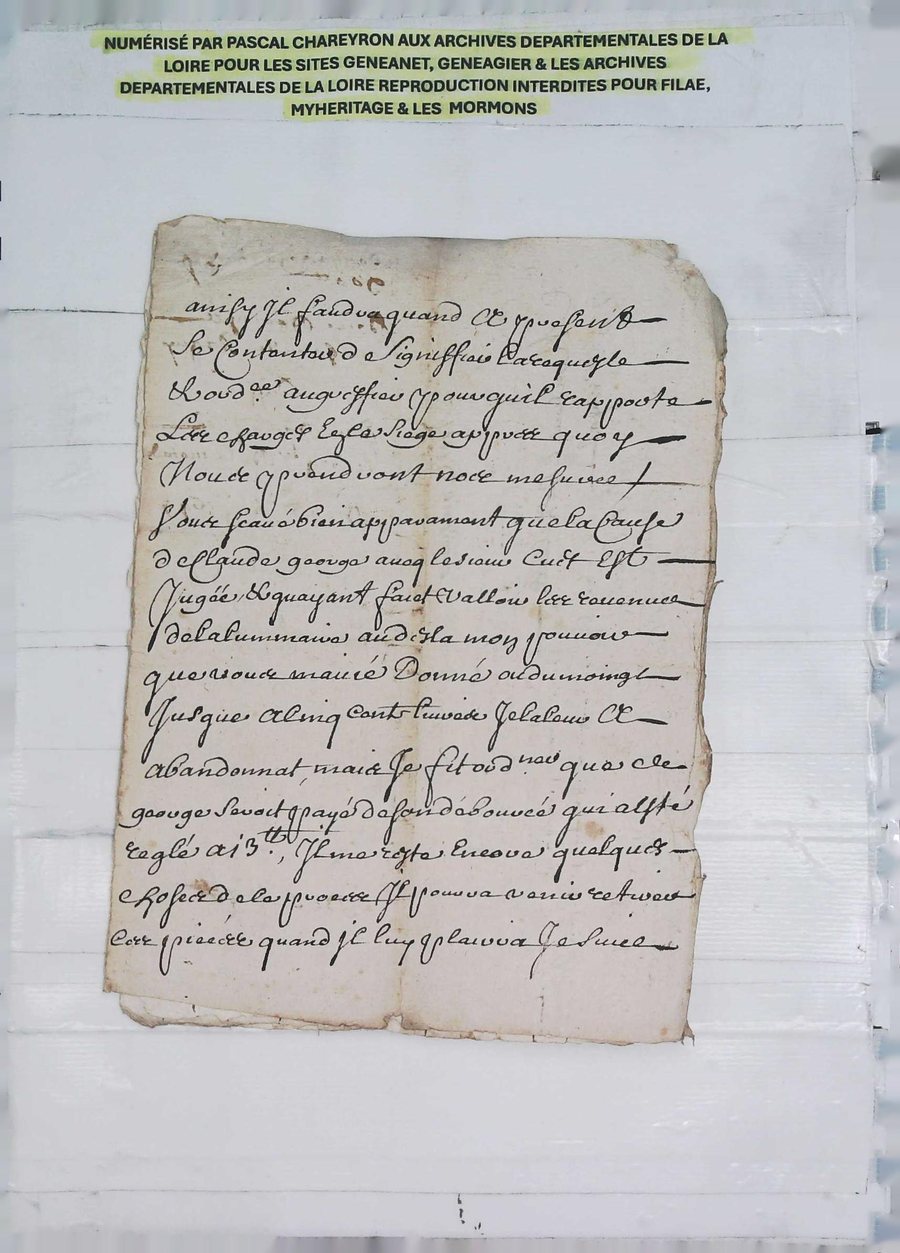 NUMÉRISÉ PAR PASCAL CHAREYRON AUX ARCHIVES DEPARTEMENTALES DE LA
LOIRE POUR LES SITES GENEANET, GENEAGIER & LES ARCHIVES
DEPARTEMENTALES DE LA LOIRE REPRODUCTION INTERDITES POUR FILAE,
MYHERITAGE & LES MORMONS
ainsy Il faudra quand A present
se Contenter de signiffier la requeste
& ord.ce au greffier pour quil rapporte
Les charges le siege appres quoy
Nous prendront nos mesures /
Vous scavé bien apparament que la Cause
de Claude george avecq le sieur Est
Jugée & quayant faict valloir les revenus
de la luminaire au dela mon pouvoir
que vous mavié Donné ou du moings
Jusque a cinq Cent livres Je la leur A
abandonnat, mais Je fit ord.ner que ce
george seroit payé de son débourcé qui a esté
reglé a 13.tt, Il me reste Encore quelques
choses de ce proces Il pourra venir retirer
ces pieces quand il luy plairra Je suis